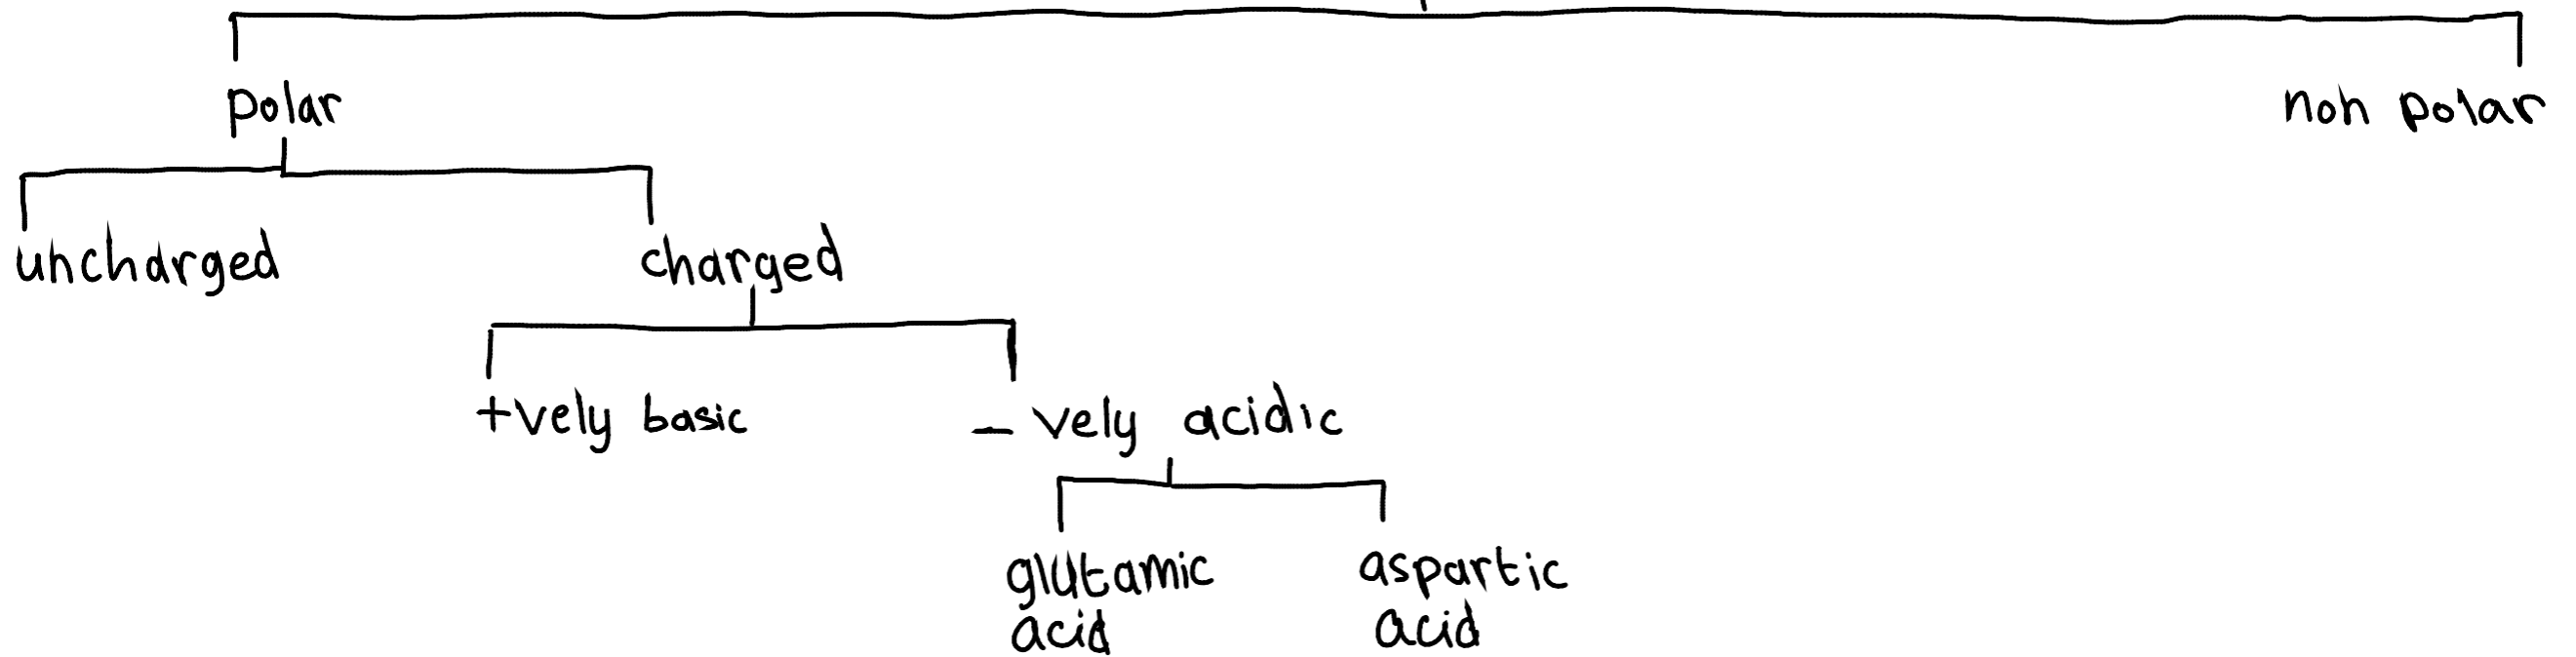 polar
non polar
uncharged
charged
+vely basic
- vely acidic
glutamic
acid
aspartic
acid